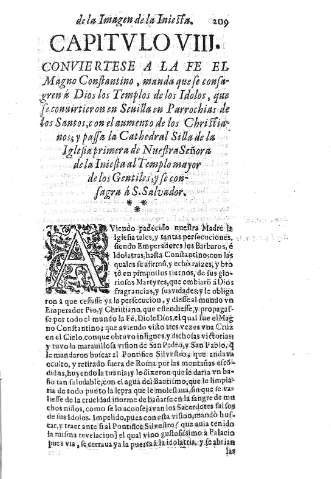 de la Imagen de la Iniesta. 209
CAPITVLO VIII.
CONVIERTESE A LA FE EL
Magno Constantino, manda que se consa-
gren á Dios los Templos de los Idolos, que
se convirtieron en Sevilla en Parrochias de
los Santos, con el aumento de los Christia-
nos; y passa la Cathedral Silla de la
Iglesia primera de Nuestra Señora
de la Iniesta al Templo mayor
de los Gentiles, y se con-
sagra á S. Salvador.
* *
*
AViendo padecido nuestra Madre la
Iglesia tales, y tantas persecuciones,
siendo Emperadores los Barbaros, é
Idolatras, hasta Constantino: con las
quales y echó raizes, y bro-
tó en pimpollos tiernos, de sus glo-
riosos Martyres, que embiaró á Dios
fragracias, y suavidades; y le obliga-
ron á que cessasse ya la persecucion, y diesse al mundo vn
Emperador Pio, y Christiano, que estendiesse, y propagas-
se por todo el mundo la Fé. Dióle Dios, el qual fue el Mag-
no Constantino; que aviendo visto tres vezes vna Cruz
en el Cielo, conque obravo insignes, y dichosas victorias;
y tuvo la maravillosa vision de San Pedro, y San Pablo, q̃
le mandaron buscar al Pontifice Silvestro; que andava
oculto, y retirado fuera de Roma por las montañas escó-
didas, huyendo la tienda; y le dixeron que se daria vn ba-
ño tan saludable, con el agua del Baptismo, que le limpia-
ria de todo punto la lepra que le molestava, sin que se va-
liesse de la crueldad inorme de bañarse en la sangre de mu-
chos niños, como se lo aconsejavan los Sacerdotes falsos
de sus Idolos. Impelido, pues con esta vision, mandó bus-
car, y traer ante sí al Pontifice Silvestro (que avia tenido
la misma revelacion) el qual vino gustosissimo á Palacio
pues via, se cerrava ya la puerta á la idolatria, y se abrian
las